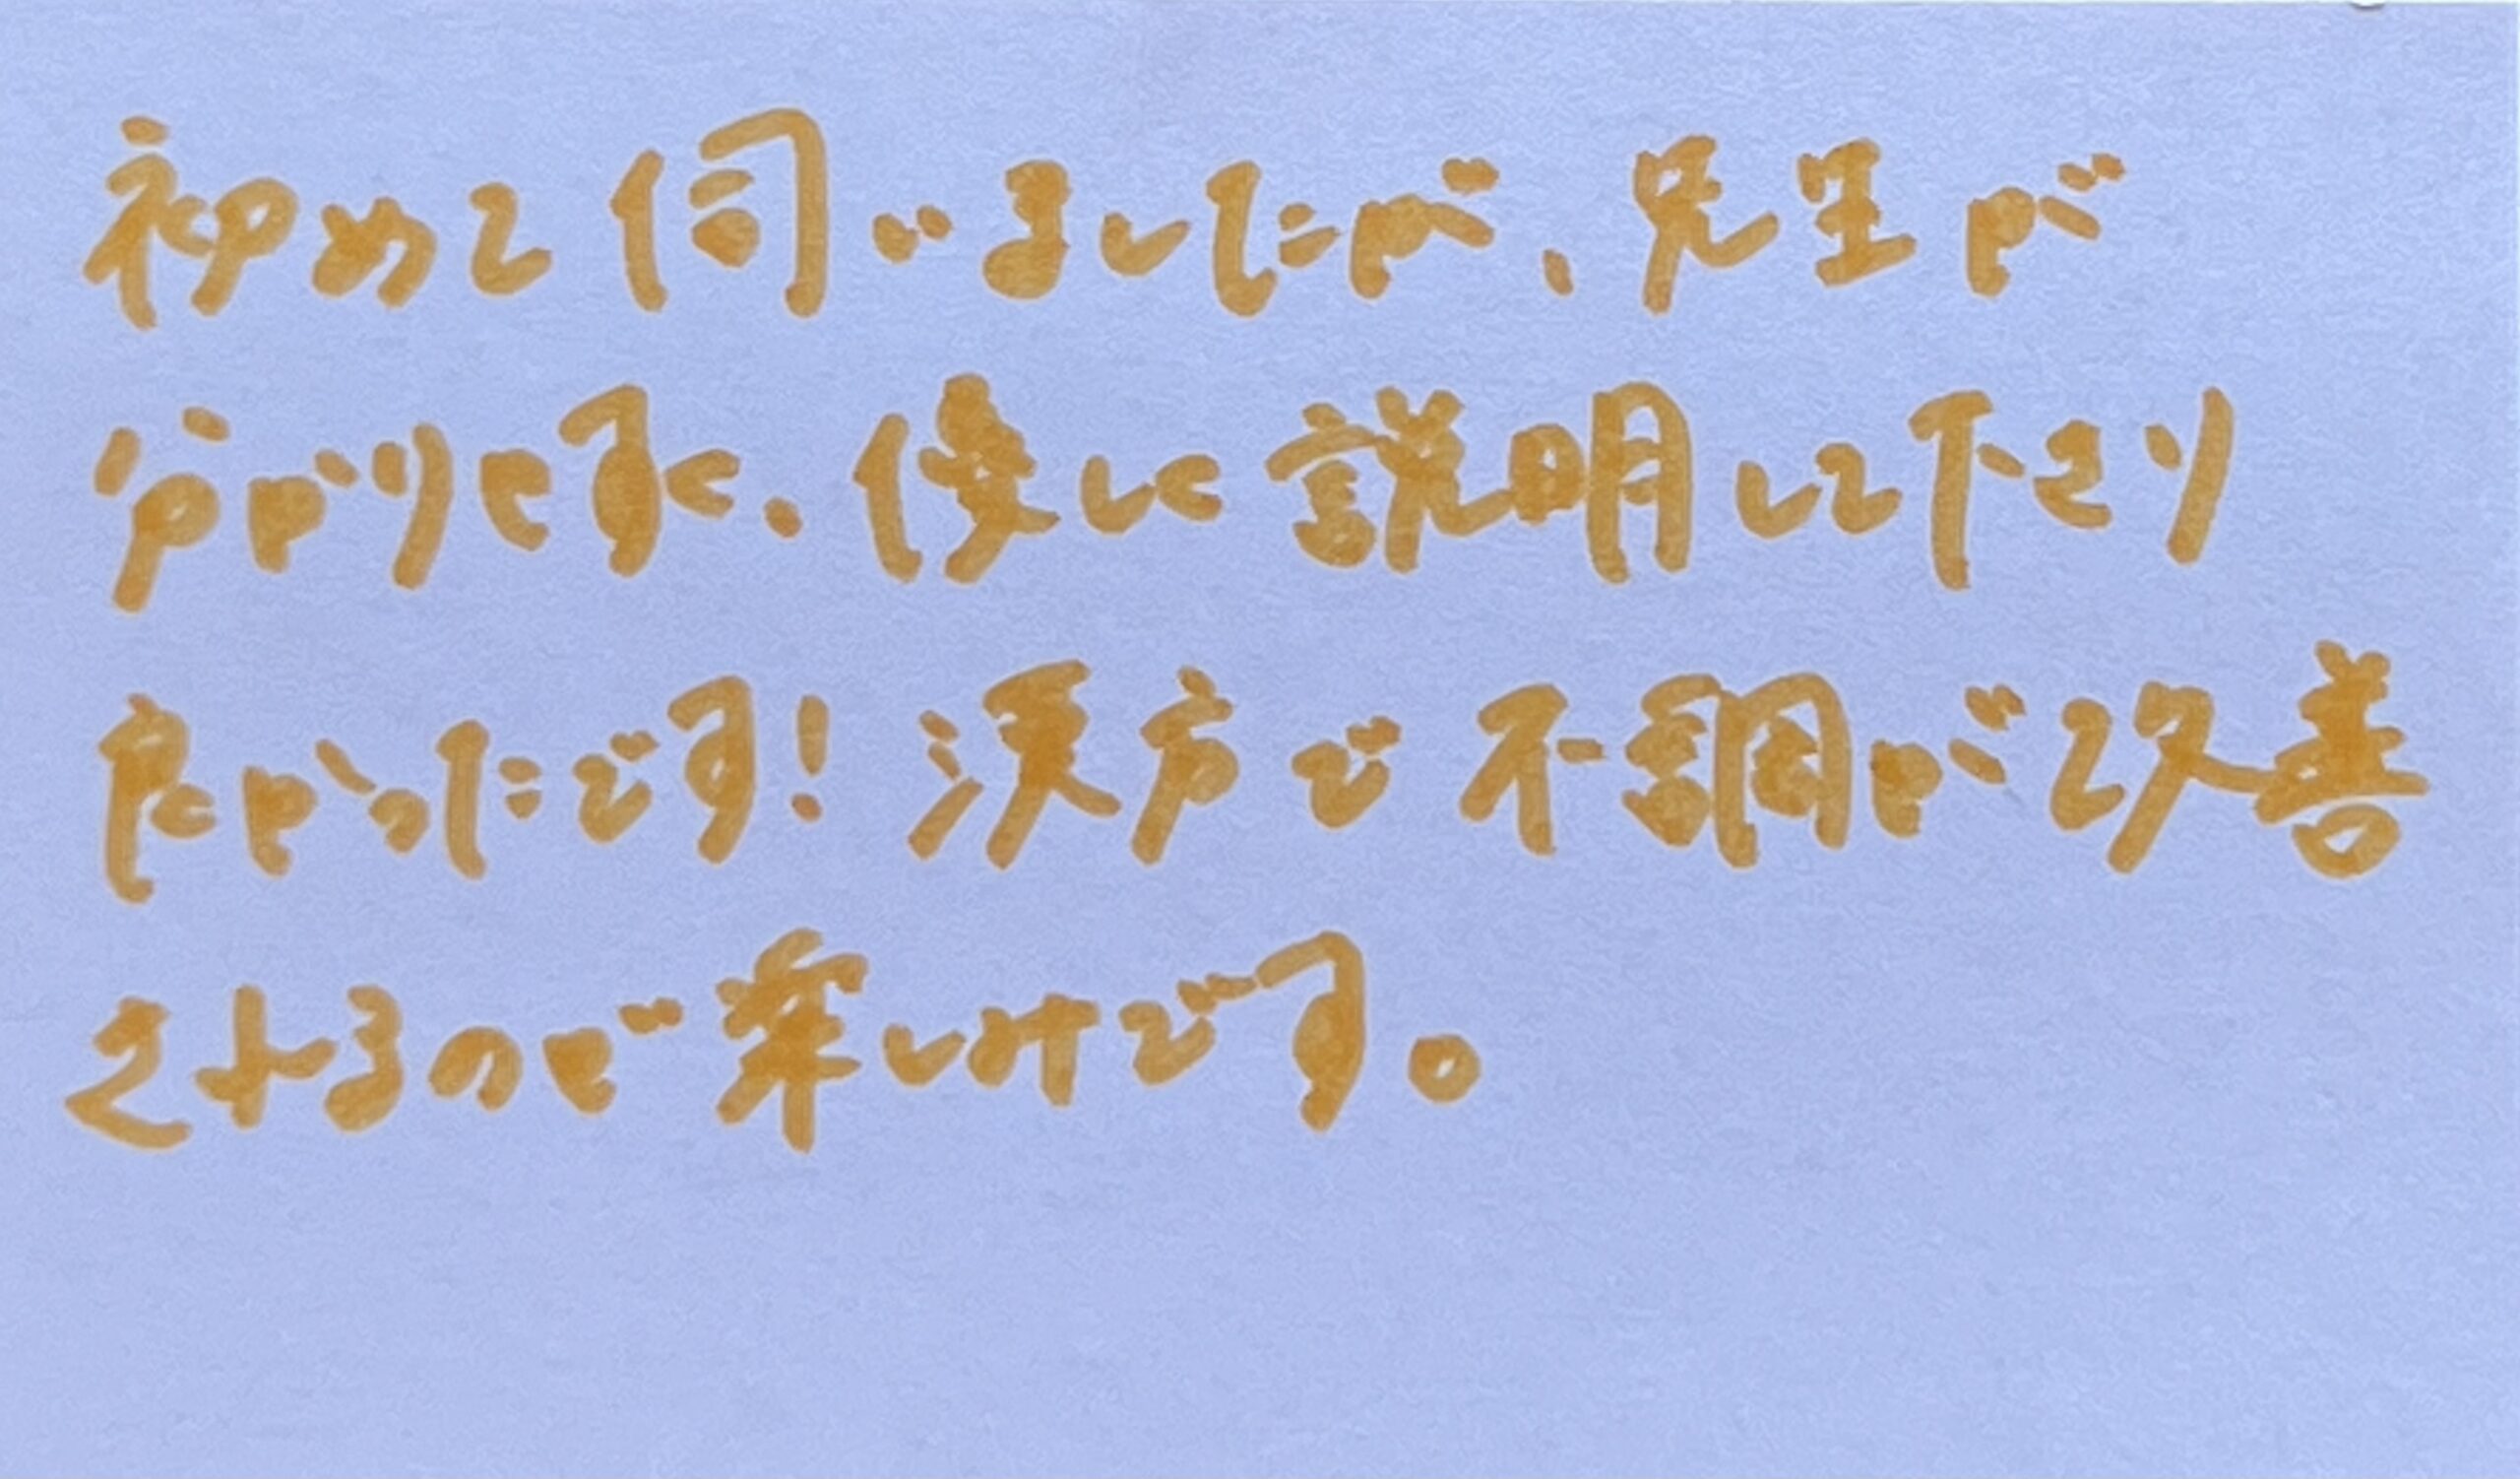 初めて伺いましたが、先生が
分かりやすく、優しく説明して下さり
良かったです!漢方で不調が改善
されるので楽しみです。